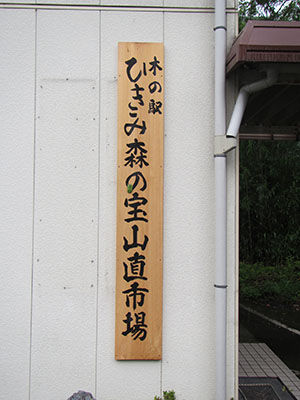 木の駅
ひさこみ森の宝山直市場